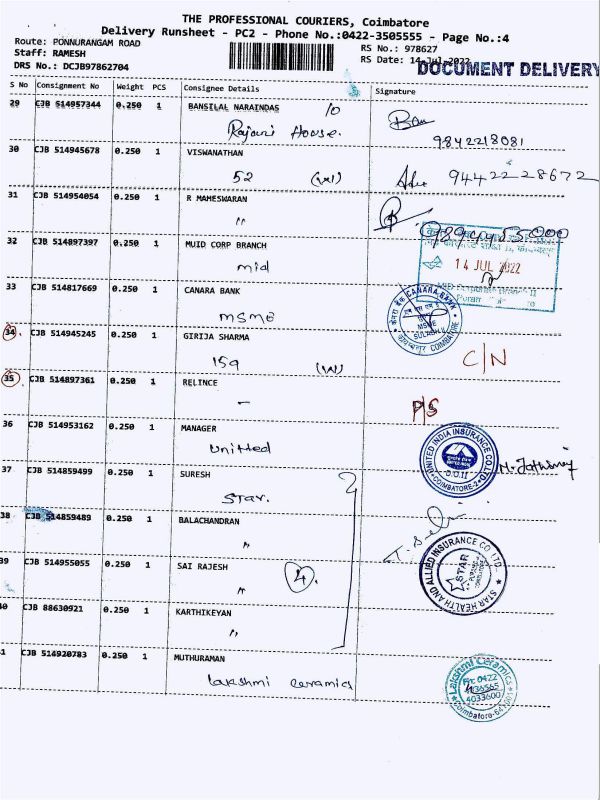 THE PROFESSIONAL COURIERS, Coimbatore
Delivery Runsheet - PC2 - Phone No.:0422-3505555 - Page No.:4
Route: PONNURANGAM ROAD
RS No.: 978627
Staff: RAMESH
RS Date: 14-Jul-2022
DRS No.: DCJB97862704
DOCUMENT DELIVERY
S No Consignment No Weight PCS Consignee Details Signature
29 CJB 514957344 0.250 1 BANSILAL NARAINDAS
Rajani House.
9842218081
30 CJB 514945678 0.250 1 VISWANATHAN
52
31 CJB 514954054 0.250 1 R MAHESWARAN
"
32 CJB 514897397 0.250 1 MUID CORP BRANCH
mid
14 JUL 2022
33 CJB 514817669 0.250 1 CANARA BANK
MSME
CANARA BANK
MSME
COIMBATORE
34 CJB 514945245 0.250 1 GIRIJA SHARMA
159
C/N
35 CJB 514897361 0.250 1 RELINCE
-
P/S
36 CJB 514953162 0.250 1 MANAGER
United
UNITED INDIA INSURANCE CO.LTD
COIMBATORE-2
37 CJB 514859499 0.250 1 SURESH
Star.
38 CJB 514859489 0.250 1 BALACHANDRAN
"
39 CJB 514955055 0.250 1 SAI RAJESH
"
4.
STAR HEALTH AND ALLIED INSURANCE CO LTD.
STAR
40 CJB 88630921 0.250 1 KARTHIKEYAN
"
41 CJB 514920783 0.250 1 MUTHURAMAN
Lakshmi ceramics
Lakshmi Ceramics
0422
4036565
4033600